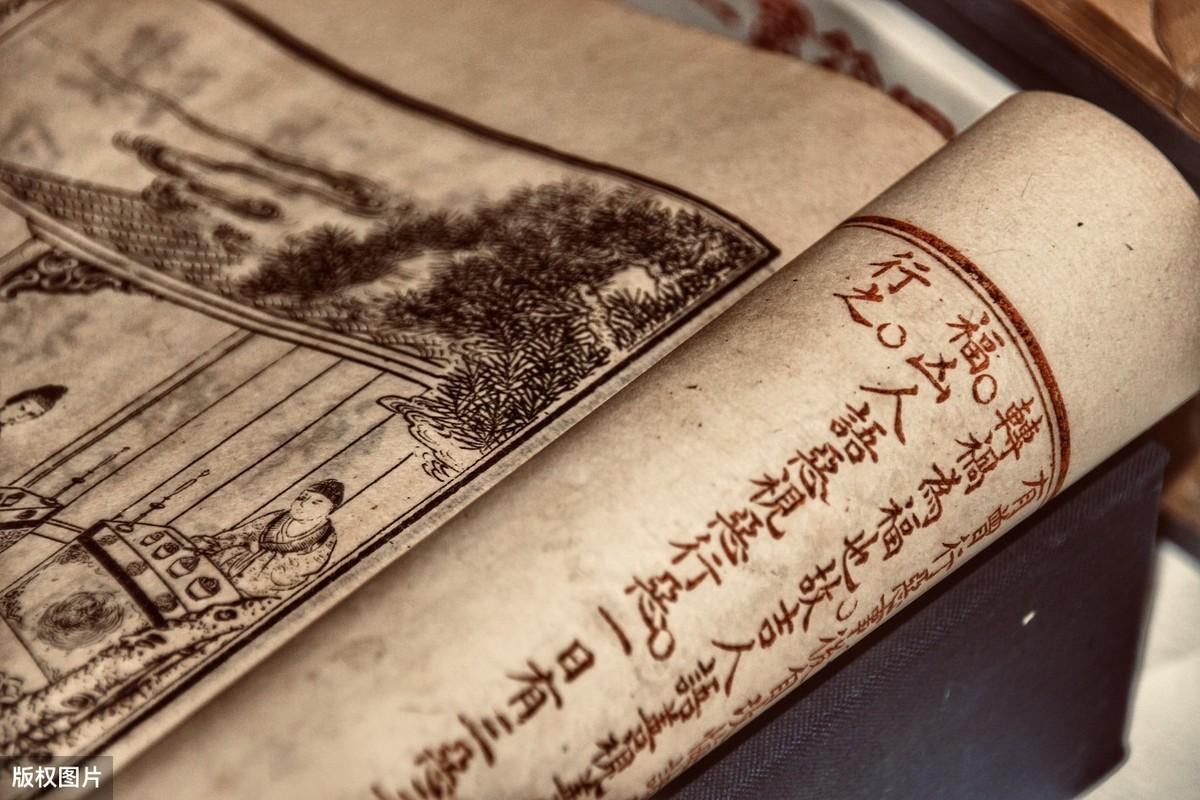 有曾行惡事
轉禍為福也○故吉人語善視善
福○凶人語惡視惡行惡○一日有三惡
行之○
版权图片